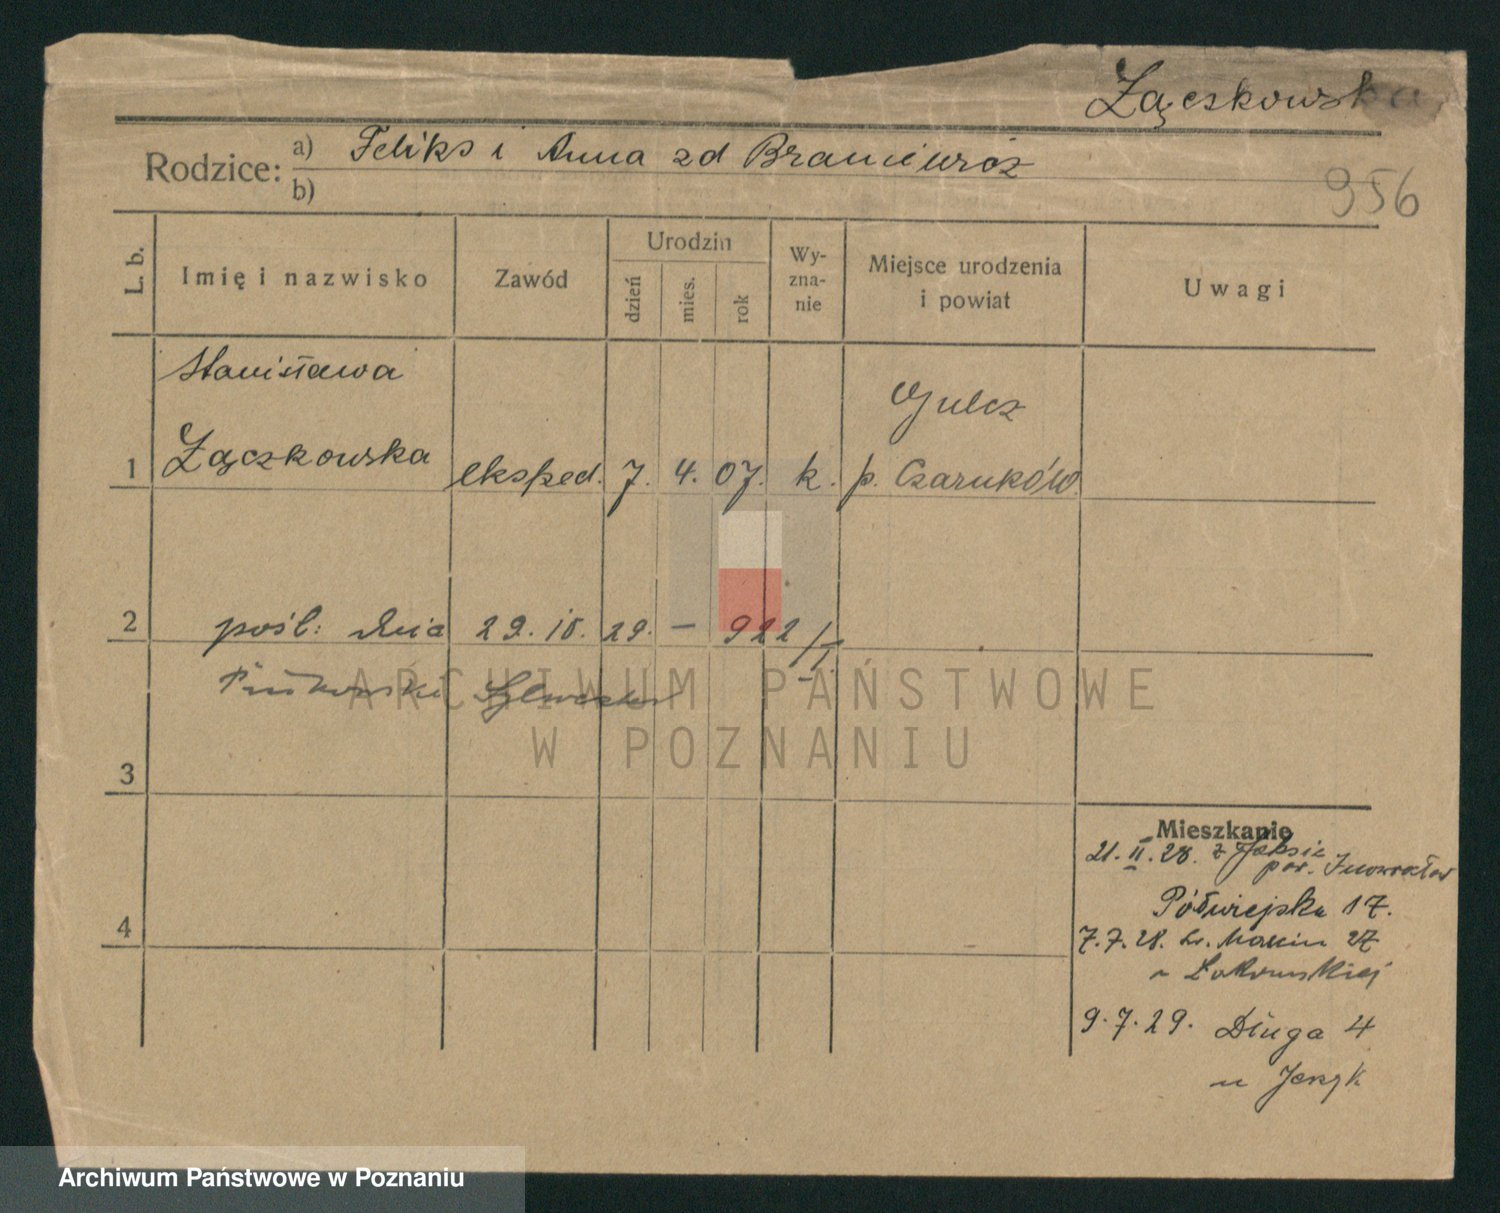 Łączkowska
Rodzice: a) Feliks i Anna zd
b)
956
L. b.
Imię i nazwisko
Zawód
Urodzin
dzień
mies.
rok
Wy-
zna-
nie
Miejsce urodzenia
i powiat
Uwagi
Stanisława
Gulcz
1 Łączkowska eksped. 7. 4. 07. k. p. Czarnków
2 pośl: dnia 29. 29. — 922/I
ARCHIWUM PAŃSTWOWE
W POZNANIU
3
Mieszkanie
21.II.28. z
pow. Inowrocław
Półwiejska 17.
4
7.7.28. św. Marcin 27
9.7.29. Długa 4
Archiwum Państwowe w Poznaniu